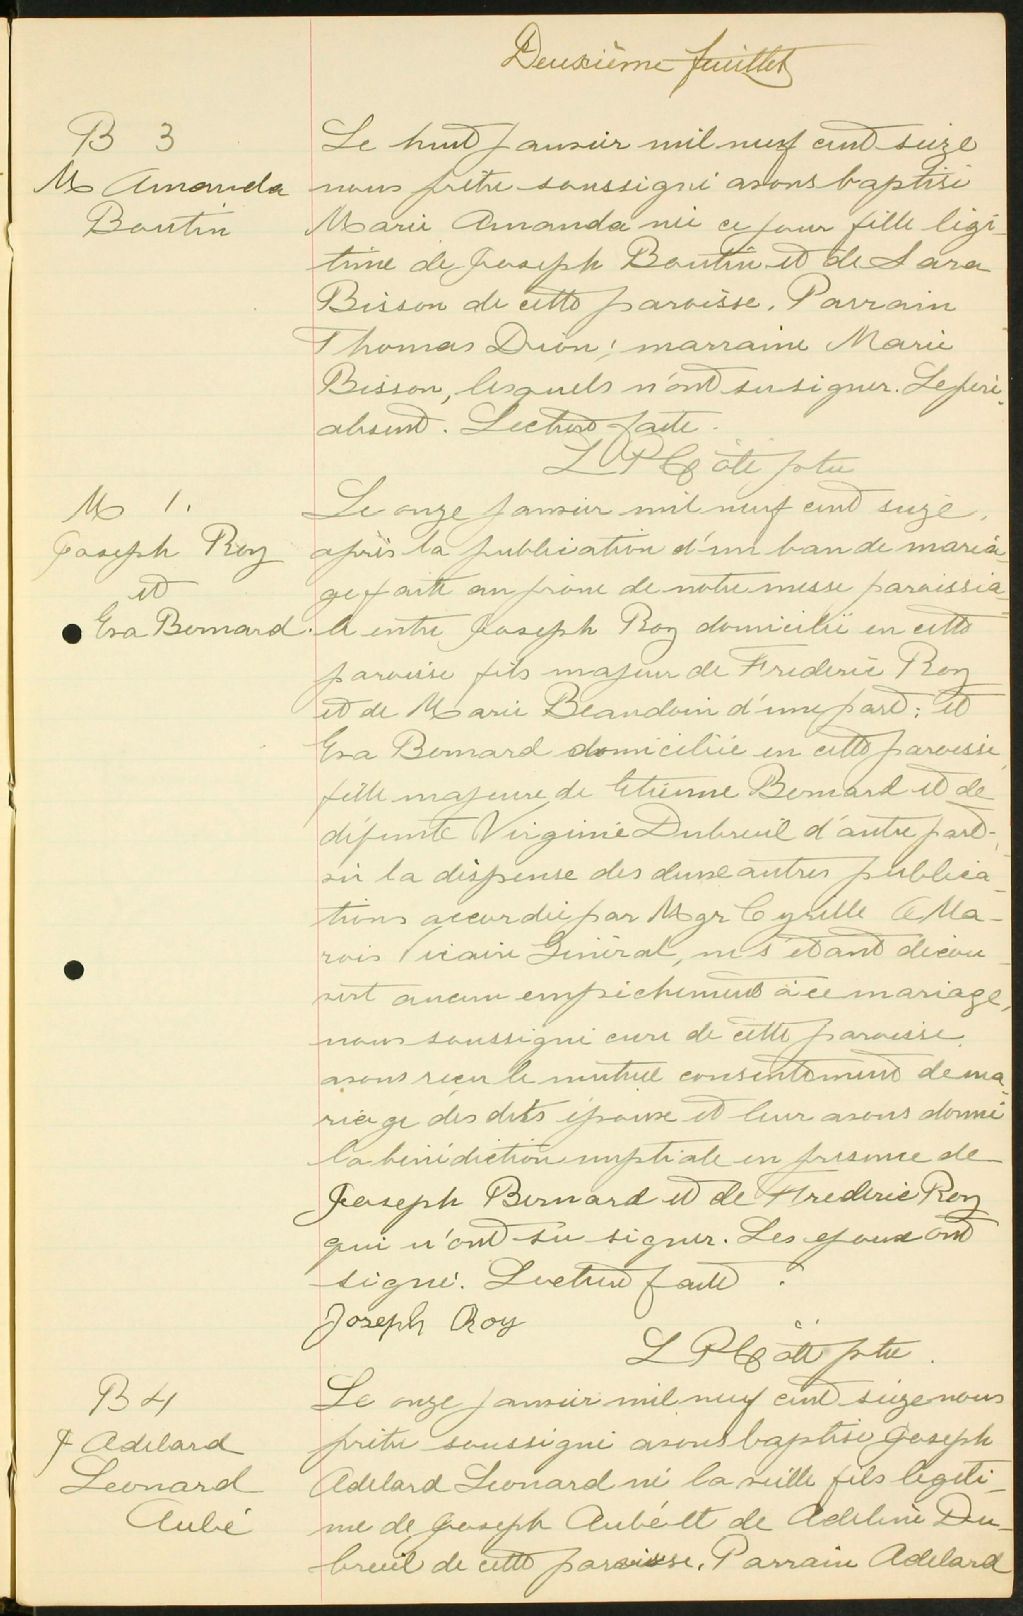 Deuxième feuillet
B 3
M Amanda
Boutin
Le huit janvier mil neuf cent seize
nous prêtre soussigné avons baptisé
Marie Amanda née ce jour fille légi-
time de Joseph Boutin et de Sara
Bisson de cette paroisse. Parrain
Thomas Dion; marraine Marie
Bisson, lesquels n'ont su signer. Le père
absent. Lecture faite.
L P Côté ptre
M 1.
Joseph Roy
et
Eva Bernard.
Le onze janvier mil neuf cent seize,
après la publication d'un ban de maria-
ge faite au prône de notre messe paroissia-
le entre Joseph Roy domicilié en cette
paroisse fils majeur de Frederic Roy
et de Marie Beaudoin d'une part: et
Eva Bernard domiciliée en cette paroisse
fille majeure de Etienne Bernard et de
défunte Virginie Dubreuil d'autre part-
vu la dispense des deux autres publica-
tions accordée par Mgr Cyrille A Ma-
rois Vicaire Général, ne s'étant décou-
vert aucun empêchement à ce mariage,
nous soussigné curé de cette paroisse
avons reçu le mutuel consentement de ma-
riage des dits époux et leur avons donné
la bénédiction nuptiale en présence de
Joseph Bernard et de Frederic Roy
qui n'ont su signer. Les epoux ont
signé. Lecture faite.
Joseph Roy
L P Côté ptre.
B 4
J Adelard
Leonard
Aubé
Le onze janvier mil neuf cent seize nous
prêtre soussigné avons baptisé Joseph
Adelard Leonard né la veille fils légiti-
me de Joseph Aubé et de Adeline Du-
breuil de cette paroisse. Parrain Adelard